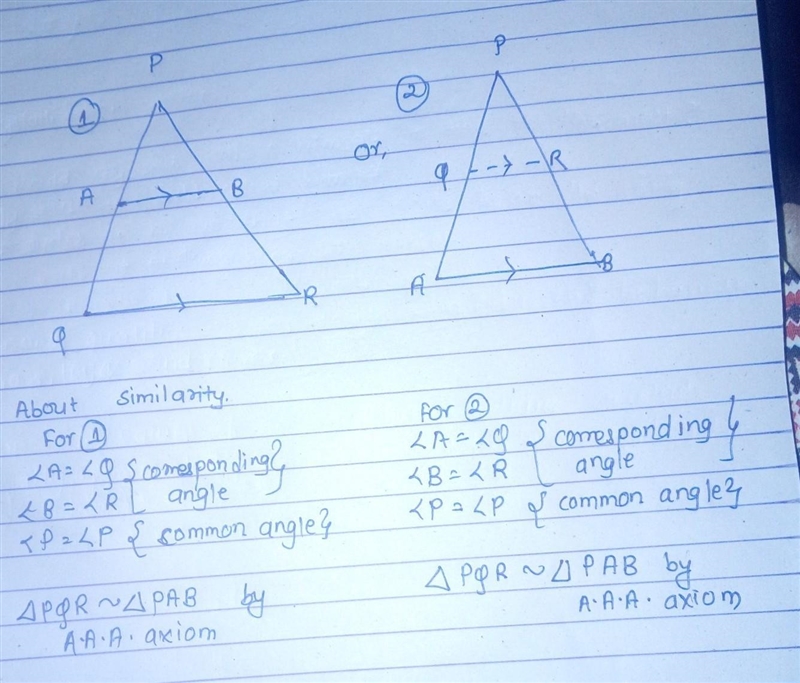 P
①
A
B
Q
R
Or,
P
②
Q
R
A
B
About similarity.
For ①
∠A = ∠Q { corresponding }
∠B = ∠R angle
∠P = ∠P { common angle }
△PQR ~ △PAB by
A.A.A. axiom
For ②
∠A = ∠Q { corresponding }
∠B = ∠R angle
∠P = ∠P { common angle }
△PQR ~ △PAB by
A.A.A. axiom